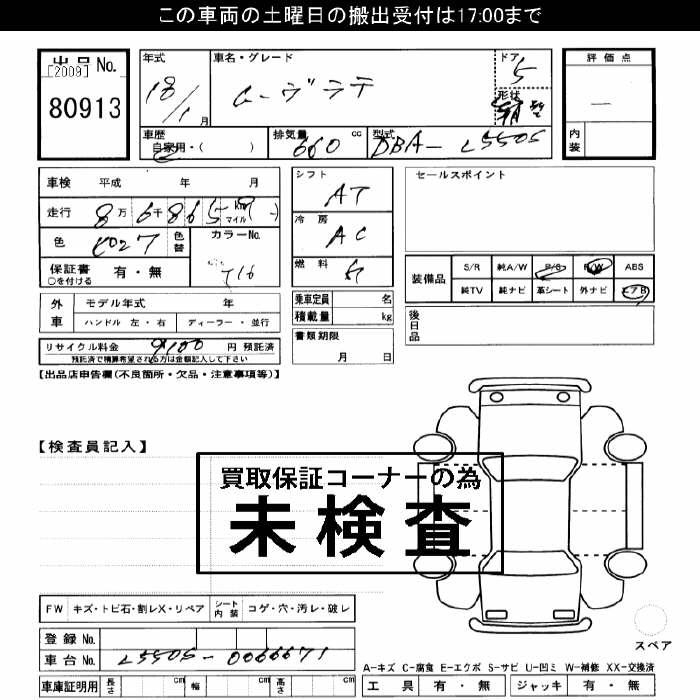 この車両の土曜日の搬出受付は17:00まで
出品 No.
[2009]
80913
年式
18/1月
車名・グレード
ムーヴラテ
ドア
5
形状
評価点
内装
車歴
自家用・( )
排気量
660 cc
型式
DBA-L550S
車検 平成 年 月
走行 8万6千865 km マイル
色
色替
カラーNo.
T16
保証書 有・無
○を付ける
シフト
AT
冷房
AC
燃料
セールスポイント
装備品
S/R 純A/W P/S P/W ABS
純TV 純ナビ 革シート 外ナビ エアB
外車
モデル年式 年
ハンドル 左・右 ディーラー・並行
乗車定員 名
積載量 kg
後日品
リサイクル料金 9100 円 預託済
預託済で精算希望される方は金額記入して下さい
書類期限
月 日
【出品店申告欄(不良箇所・欠品・注意事項等)】
【検査員記入】
買取保証コーナーの為
未検査
FW キズ・トビ石・割レX・リペア シート内装 コゲ・穴・汚レ・破レ
登録 No.
車台 No. L550S-0066671
車庫証明用 長さ cm 幅 cm 高さ cm
スペア
A-キズ C-腐食 E-エクボ S-サビ U-凹ミ W-補修 XX-交換済
工具 有・無 ジャッキ 有・無